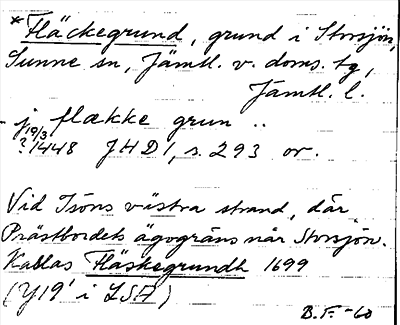 *Fläckegrund, grund i Storsjön,
Sunne sn, Jämtl. v. doms. tg,
Jämtl. l.
- j flække grun ..
?19/3 1448 JHD1, s. 293 or.
Vid Isöns västra strand, där
Prästbordets ägogräns når Storsjön.
Kallas Fläskegrundh 1699
(Y19' i LSA)
B.F. -60